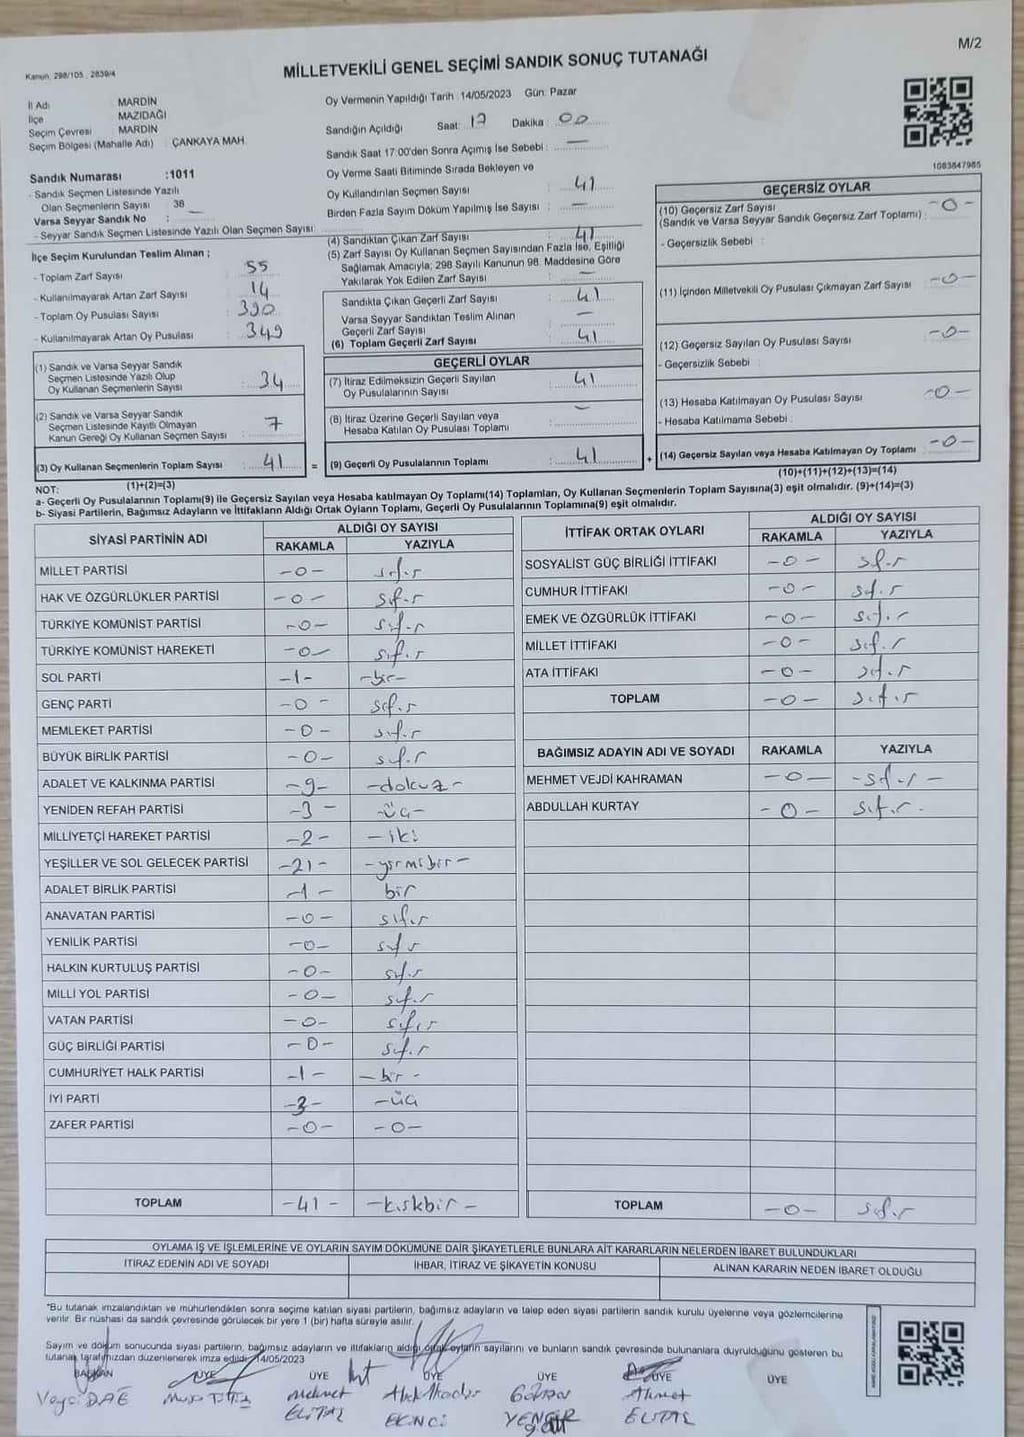 M/2
Kanun, 298/105 , 2839/4
MİLLETVEKİLİ GENEL SEÇİMİ SANDIK SONUÇ TUTANAĞI
İl Adı : MARDİN
İlçe : MAZIDAĞI
Seçim Çevresi : MARDİN
Seçim Bölgesi (Mahalle Adı) : ÇANKAYA MAH.
Oy Vermenin Yapıldığı Tarih :14/05/2023 Gün: Pazar
Sandığın Açıldığı Saat: 17 Dakika : 00
Sandık Saat 17:00'den Sonra Açımış İse Sebebi : —
Oy Verme Saati Bitiminde Sırada Bekleyen ve
Oy Kullandırılan Seçmen Sayısı : 41
Birden Fazla Sayım Döküm Yapılmış İse Sayısı : —
1083847985
Sandık Numarası :1011
- Sandık Seçmen Listesinde Yazılı
Olan Seçmenlerin Sayısı 38
Varsa Seyyar Sandık No : —
- Seyyar Sandık Seçmen Listesinde Yazılı Olan Seçmen Sayısı:
İlçe Seçim Kurulundan Teslim Alınan ;
- Toplam Zarf Sayısı : 55
- Kullanılmayarak Artan Zarf Sayısı : 14
- Toplam Oy Pusulası Sayısı : 390
- Kullanılmayarak Artan Oy Pusulası : 349
(1) Sandık ve Varsa Seyyar Sandık
Seçmen Listesinde Yazılı Olup
Oy Kullanan Seçmenlerin Sayısı : 34
(2) Sandık ve Varsa Seyyar Sandık
Seçmen Listesinde Kayıtlı Olmayan
Kanun Gereği Oy Kullanan Seçmen Sayısı : 7
(3) Oy Kullanan Seçmenlerin Toplam Sayısı : 41
(1)+(2)=(3)
(4) Sandıktan Çıkan Zarf Sayısı : 41
(5) Zarf Sayısı Oy Kullanan Seçmen Sayısından Fazla İse, Eşitliği
Sağlamak Amacıyla; 298 Sayılı Kanunun 98. Maddesine Göre
Yakılarak Yok Edilen Zarf Sayısı : —
Sandıkta Çıkan Geçerli Zarf Sayısı : 41
Varsa Seyyar Sandıktan Teslim Alınan
Geçerli Zarf Sayısı : —
(6) Toplam Geçerli Zarf Sayısı : 41
GEÇERLİ OYLAR
(7) İtiraz Edilmeksizin Geçerli Sayılan
Oy Pusulalarının Sayısı : 41
(8) İtiraz Üzerine Geçerli Sayılan veya
Hesaba Katılan Oy Pusulası Toplamı : —
= (9) Geçerli Oy Pusulalarının Toplamı : 41 +
GEÇERSİZ OYLAR
(10) Geçersiz Zarf Sayısı
(Sandık ve Varsa Seyyar Sandık Geçersiz Zarf Toplamı) : -0-
- Geçersizlik Sebebi :
(11) İçinden Milletvekili Oy Pusulası Çıkmayan Zarf Sayısı : -0-
(12) Geçersiz Sayılan Oy Pusulası Sayısı : -0-
- Geçersizlik Sebebi :
(13) Hesaba Katılmayan Oy Pusulası Sayısı : -0-
- Hesaba Katılmama Sebebi :
(14) Geçersiz Sayılan veya Hesaba Katılmayan Oy Toplamı : -0-
(10)+(11)+(12)+(13)=(14)
NOT:
a- Geçerli Oy Pusulalarının Toplamı(9) ile Geçersiz Sayılan veya Hesaba katılmayan Oy Toplamı(14) Toplamları, Oy Kullanan Seçmenlerin Toplam Sayısına(3) eşit olmalıdır. (9)+(14)=(3)
b- Siyasi Partilerin, Bağımsız Adayların ve İttifakların Aldığı Ortak Oyların Toplamı, Geçerli Oy Pusulalarının Toplamına(9) eşit olmalıdır.
SİYASİ PARTİNİN ADI ALDIĞI OY SAYISI
RAKAMLA YAZIYLA
MİLLET PARTİSİ -0- sıfır
HAK VE ÖZGÜRLÜKLER PARTİSİ -0- sıfır
TÜRKİYE KOMÜNİST PARTİSİ -0- sıfır
TÜRKİYE KOMÜNİST HAREKETİ -0- sıfır
SOL PARTİ -1- -bir-
GENÇ PARTİ -0- sıfır
MEMLEKET PARTİSİ -0- sıfır
BÜYÜK BİRLİK PARTİSİ -0- sıfır
ADALET VE KALKINMA PARTİSİ -9- -dokuz-
YENİDEN REFAH PARTİSİ -3- -üç-
MİLLİYETÇİ HAREKET PARTİSİ -2- -iki
YEŞİLLER VE SOL GELECEK PARTİSİ -21- -yirmibir-
ADALET BİRLİK PARTİSİ -1- bir
ANAVATAN PARTİSİ -0- sıfır
YENİLİK PARTİSİ -0- sıfır
HALKIN KURTULUŞ PARTİSİ -0- sıfır
MİLLİ YOL PARTİSİ -0- sıfır
VATAN PARTİSİ -0- sıfır
GÜÇ BİRLİĞİ PARTİSİ -0- sıfır
CUMHURİYET HALK PARTİSİ -1- -bir-
İYİ PARTİ -3- -üç
ZAFER PARTİSİ -0- -0-
TOPLAM -41- -kırkbir-
İTTİFAK ORTAK OYLARI ALDIĞI OY SAYISI
RAKAMLA YAZIYLA
SOSYALİST GÜÇ BİRLİĞİ İTTİFAKI -0- sıfır
CUMHUR İTTİFAKI -0- sıfır
EMEK VE ÖZGÜRLÜK İTTİFAKI -0- sıfır
MİLLET İTTİFAKI -0- sıfır
ATA İTTİFAKI -0- sıfır
TOPLAM -0- sıfır
BAĞIMSIZ ADAYIN ADI VE SOYADI RAKAMLA YAZIYLA
MEHMET VEJDİ KAHRAMAN -0- -sıfır-
ABDULLAH KURTAY -0- sıfır.
TOPLAM -0- sıfır
OYLAMA İŞ VE İŞLEMLERİNE VE OYLARIN SAYIM DÖKÜMÜNE DAİR ŞİKAYETLERLE BUNLARA AİT KARARLARIN NELERDEN İBARET BULUNDUKLARI
İTİRAZ EDENİN ADI VE SOYADI İHBAR, İTİRAZ VE ŞİKAYETİN KONUSU ALINAN KARARIN NEDEN İBARET OLDUĞU
*Bu tutanak imzalandıktan ve mühürlendikten sonra seçime katılan siyasi partilerin, bağımsız adayların ve talep eden siyasi partilerin sandık kurulu üyelerine veya gözlemcilerine
verilir. Bir nüshası da sandık çevresinde görülecek bir yere 1 (bir) hafta süreyle asılır.
Sayım ve döküm sonucunda siyasi partilerin, bağımsız adayların ve ittifakların aldığı ortak oyların sayılarını ve bunların sandık çevresinde bulunanlara duyrulduğunu gösteren bu
tutanak tarafımızdan düzenlenerek imza edildi. 14/05/2023
BAŞKAN ÜYE ÜYE ÜYE ÜYE ÜYE ÜYE
DAE Mehmet Ahmet
EKİNCİ